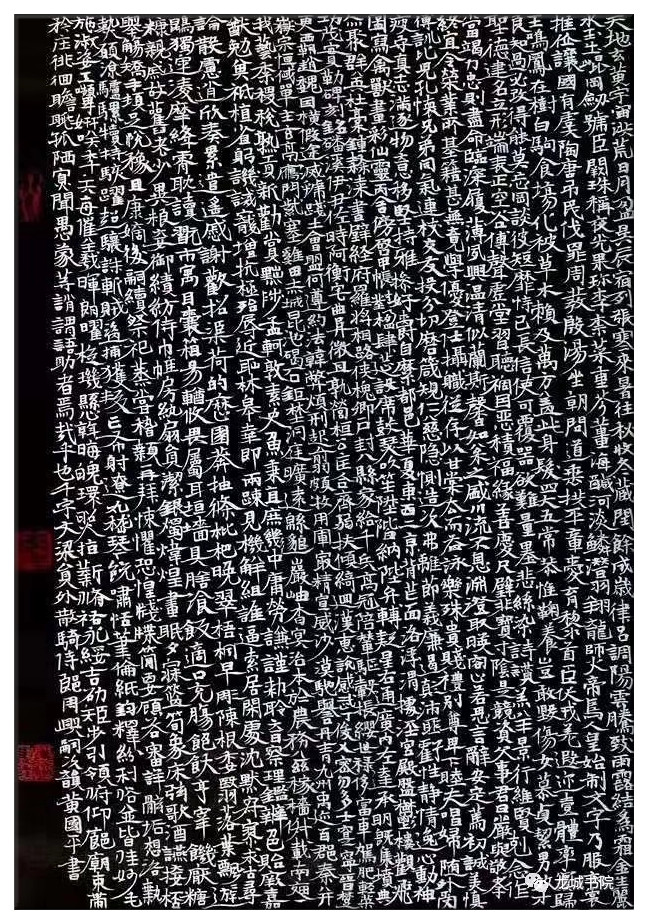 天地玄黄宇宙洪荒日月盈昃辰宿列張寒來暑往秋收冬藏閏餘成歲律呂調陽雲騰致雨露結為霜金生麗
水玉出崐岡劍號巨闕珠稱夜光果珍李柰菜重芥薑海鹹河淡鱗潛羽翔龍師火帝鳥皇始制文字乃服衣裳
推位讓國有虞陶唐吊民伐罪周發殷湯坐朝問道垂拱平章愛育黎首臣伏戎羌遐迩壹體率賓歸
王鳴鳳在樹白駒食場化被草木賴及萬方盖此身髮四大五常恭惟鞠養豈敢毀傷女慕貞絜男效才
良知過必改得能莫忘罔談彼短靡恃己長信使可覆器欲難量墨悲絲染詩讚羔羊景行維賢剋念作
聖德建名立形端表正空谷傳聲虛堂習聽禍因惡積福緣善慶尺璧非寶寸陰是競資父事君曰嚴與敬孝
當竭力忠則盡命臨深履薄夙興溫凊似蘭斯馨如松之盛川流不息淵澄取暎容止若思言辭安定篤初誠美慎
終宜令榮業所基籍甚無竟學優登仕攝職從政存以甘棠去而益詠樂殊貴賤禮別尊卑上和下睦夫唱婦隨外受
傅訓比兒孔懷兄弟同氣連枝交友投分切磨箴規仁慈隱惻造次弗離節義廉退顛沛匪虧性靜情逸心動神
疲守真志滿逐物意移堅持雅操好爵自縻都邑華夏東西二京背芒面洛浮渭據涇宮殿盤鬱樓觀飛驚
圖寫禽獸畫彩仙靈丙舍傍啓甲帳對楹肆筵設席鼓瑟吹笙陞階納陛弁轉疑星右通廣內左達承明既集墳典
亦聚群英杜稾鍾隸漆書壁經府羅將相路俠槐卿戶封八縣家給千兵高冠陪輦驅轂振纓世祿侈富車駕肥輕策
功茂實勒碑刻銘磻溪伊尹佐時阿衡奄宅曲阜微旦孰營桓公匡合濟弱扶傾綺迴漢惠說感武丁俊乂密勿多士寔寧晉楚
更霸趙魏困橫假途滅虢踐土會盟何遵約法韓弊煩刑起翦頗牧用軍最精宣威沙漠馳譽丹青九州禹迹百郡秦并
嶽宗恒岱禪主云亭鴈門紫塞雞田赤城昆池碣石鉅野洞庭曠遠緜邈巖岫杳冥治本於農務茲稼穡俶載南畝
我藝黍稷稅熟貢新勸賞黜陟孟軻敦素史魚秉直庶幾中庸勞謙謹勑聆音察理鑑皃辯色貽厥嘉
猷勉其祗植省躬譏誡寵增抗極殆辱近恥林皋幸即兩疎見機解組誰逼索居閑處沈默寂寥求古尋
論散慮逍遙欣奏累遣慼謝歡招渠荷的歷園莽抽條枇杷晚翠梧桐早凋陳根委翳落葉飄颻遊
鵾獨運凌摩絳霄耽讀翫市寓目囊箱易輶攸畏屬耳垣墻具膳飡飯適口充腸飽飫亨宰飢厭糟
糠親戚故舊老少異粮妾御績紡侍巾帷房紈扇員潔銀燭煒煌晝眠夕寐籃筍象床弦歌酒讌接杯
舉觴矯手頓足悅豫且康嫡後嗣續祭祀蒸嘗稽顙再拜悚懼恐惶牋牒簡要顧答審詳骸垢想浴執
熱願涼驢騾犢特駭躍超驤誅斬賊盜捕獲叛亡布射遼丸嵇琴阮嘯恬筆倫紙鈞釋紛利俗並皆佳妙毛
施淑姿工顰妍笑年矢每催羲暉朗曜琁璣懸斡晦魄環照指薪脩祜永綏吉劭矩步引領俯仰廊廟束帶
矜莊徘徊瞻眺孤陋寡聞愚蒙等誚謂語助者焉哉乎也千字文梁員外散騎侍郎周興嗣次韻黄國平書
龙城书院